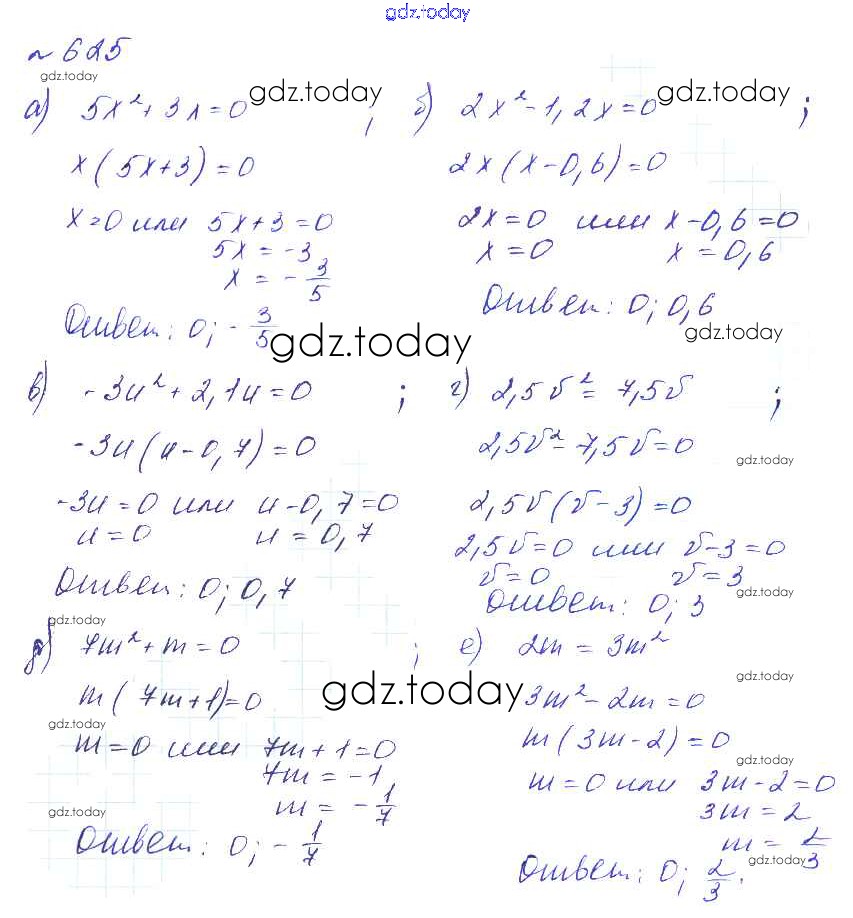 gdz.today
№ 625
gdz.today
а) 5x² + 3x = 0 gdz.today ;
x(5x+3) = 0
x = 0 или 5x+3 = 0
5x = -3
x = - 3/5
Ответ: 0; - 3/5
gdz.today
б) 2x² - 1,2x = 0 gdz.today ;
2x(x-0,6) = 0
2x = 0 или x - 0,6 = 0
x = 0 x = 0,6
Ответ: 0; 0,6
в) -3u² + 2,1u = 0 ;
-3u(u-0,7) = 0
-3u = 0 или u-0,7 = 0
u = 0 u = 0,7
Ответ: 0; 0,7
gdz.today
г) 2,5v² = 7,5v ;
2,5v² - 7,5v = 0
gdz.today
2,5v(v-3) = 0
2,5v = 0 или v-3 = 0
v = 0 v = 3
gdz.today
Ответ: 0; 3
д) 7m² + m = 0 ;
m(7m+1) = 0
gdz.today
gdz.today
m = 0 или 7m+1 = 0
7m = -1
m = - 1/7
gdz.today
Ответ: 0; - 1/7
е) 2m = 3m²
gdz.today
3m² - 2m = 0
m(3m-2) = 0
gdz.today
m = 0 или 3m-2 = 0
3m = 2
m = 2/3
gdz.today
Ответ: 0; 2/3.